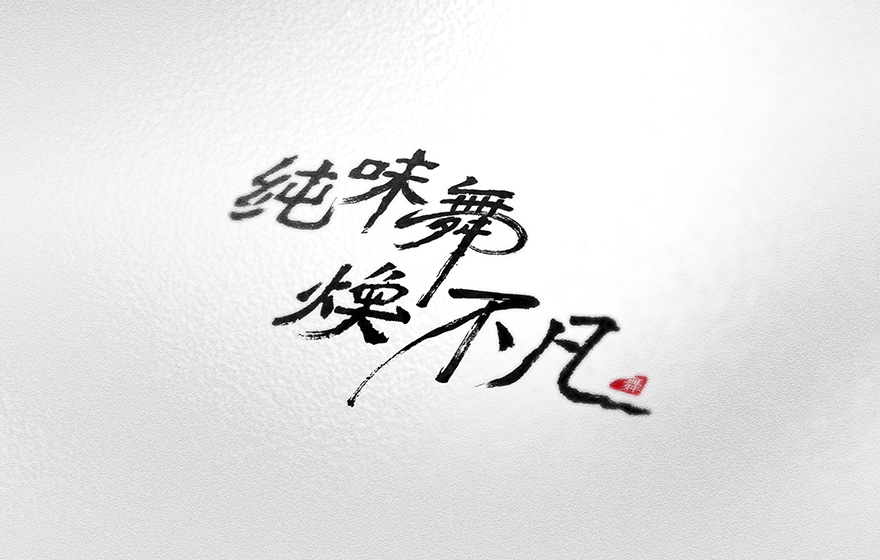 纯味舞
焕不凡
舞